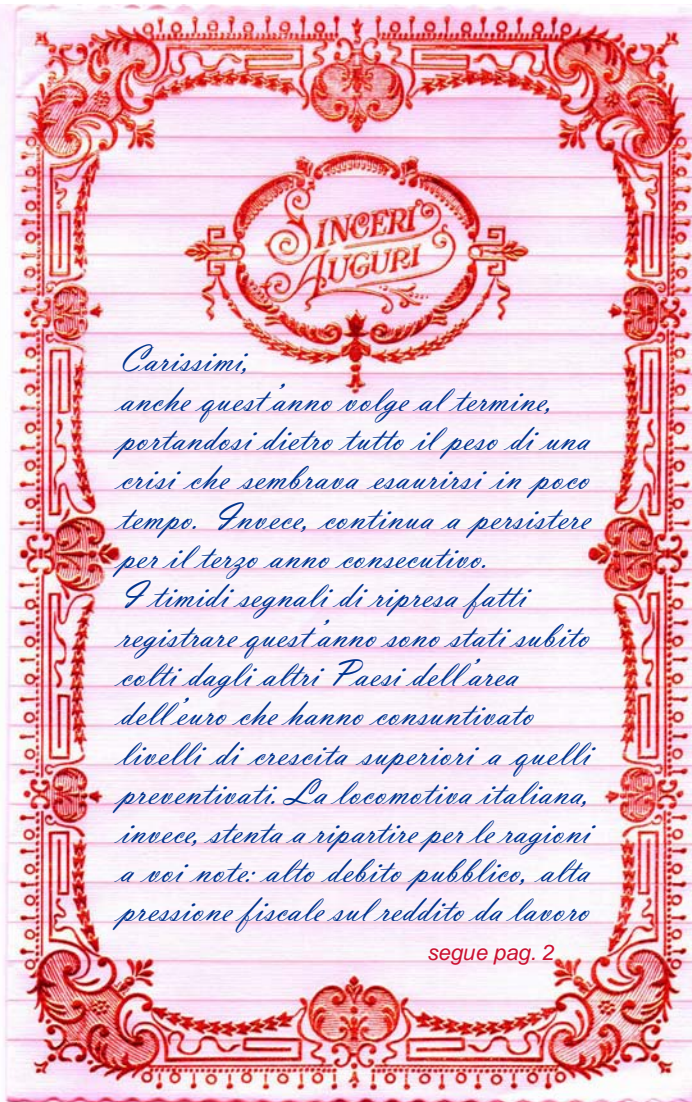 SINCERI
AUGURI
Carissimi,
anche quest'anno volge al termine,
portandosi dietro tutto il peso di una
crisi che sembrava esaurirsi in poco
tempo. Invece, continua a persistere
per il terzo anno consecutivo.
I timidi segnali di ripresa fatti
registrare quest'anno sono stati subito
colti dagli altri Paesi dell'area
dell'euro che hanno consuntivato
livelli di crescita superiori a quelli
preventivati. La locomotiva italiana,
invece, stenta a ripartire per le ragioni
a voi note: alto debito pubblico, alta
pressione fiscale sul reddito da lavoro
segue pag. 2